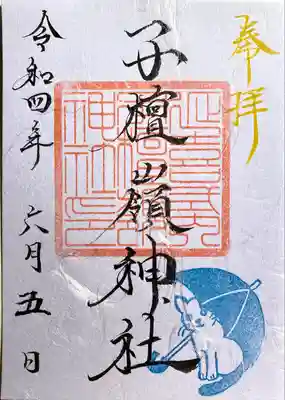 奉拝
子檀嶺神社
令和四年 六月五日